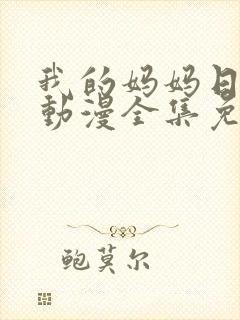 我的妈妈日
動漫全集免
鲍莫尔